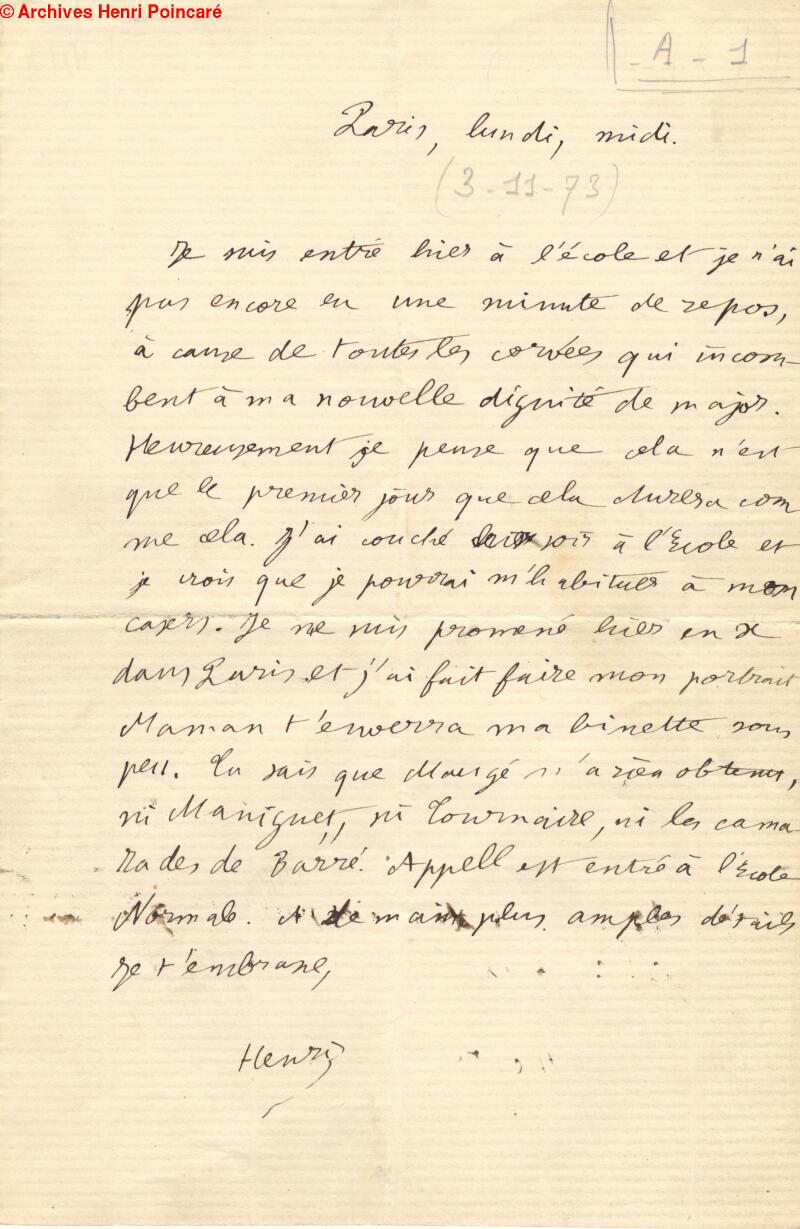 © Archives Henri Poincaré
A - 1
Paris, lundi, midi.
(3-11-73)
Je suis entré hier à l'école et je n'ai
pas encore eu une minute de repos,
à cause de toutes les corvées qui incom-
bent à ma nouvelle dignité de major.
Heureusement je pense que cela n'est
que le premier jour que cela durera com
me cela. J'ai couché hier soir à l'Ecole et
je crois que je pourrai m'habituer à mon
casers. Je me suis promené hier en x
dans Paris et j'ai fait faire mon portrait
Maman t'enverra ma binette sous
peu. Tu sais que Maugé n'a rien obtenu,
ni Maniguet, ni Tournaire, ni les cama
rades de Barré. Appell est entré à l'Ecole
Normale. A demain plus amples détails
Je t'embrasse,
Henri